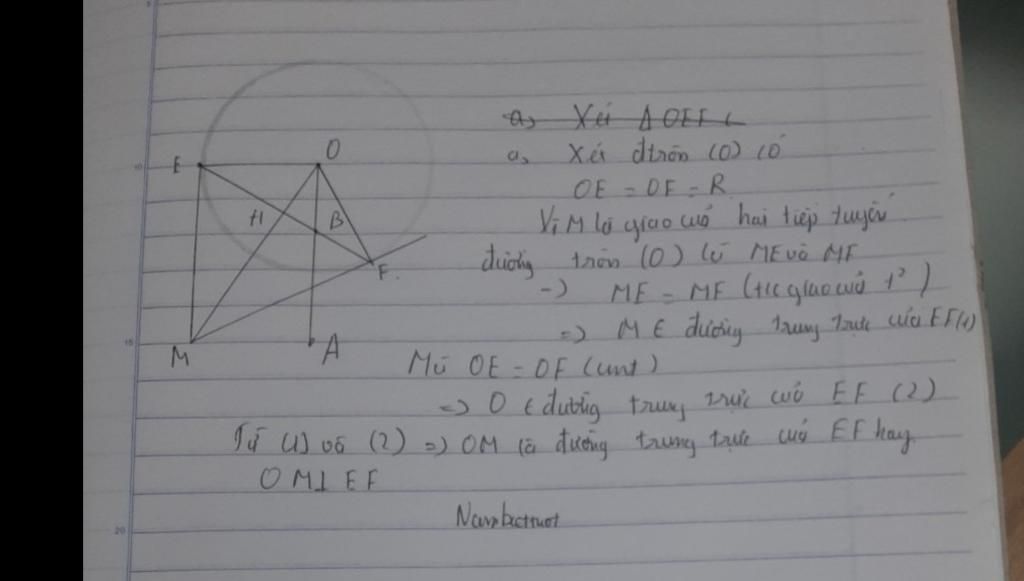 a, Xét Δ OEF (
a, Xét đtròn (O) có
OE = OF = R
Vì M là giao cuả hai tiếp tuyến
đường tròn (O) là ME và MF
=) ME = MF (t/c giao cuả t²)
=) M ∈ đường trung trực cuả EF (1)
Mà OE = OF (cmt)
=) O ∈ đường trung trực cuả EF (2)
Từ (1) và (2) =) OM là đường trung trực cuả EF hay
OM ⊥ EF
E
O
H
B
F
M
A
10
15
20